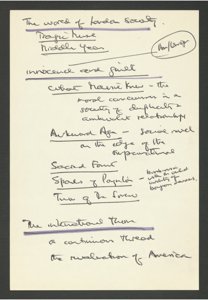 The world of London Society.
Tragic Muse
Middle Years
innocence and guilt
What Maisie Knew - the
moral consciousness in a
society of duplicity &
ambivalent relationships
Awkward Age - social novel
on the edge of the
supernatural
Sacred Fount
Spoils of Poynton
Turn of the Screw
The international Theme
a continuous thread
the revaluation of America